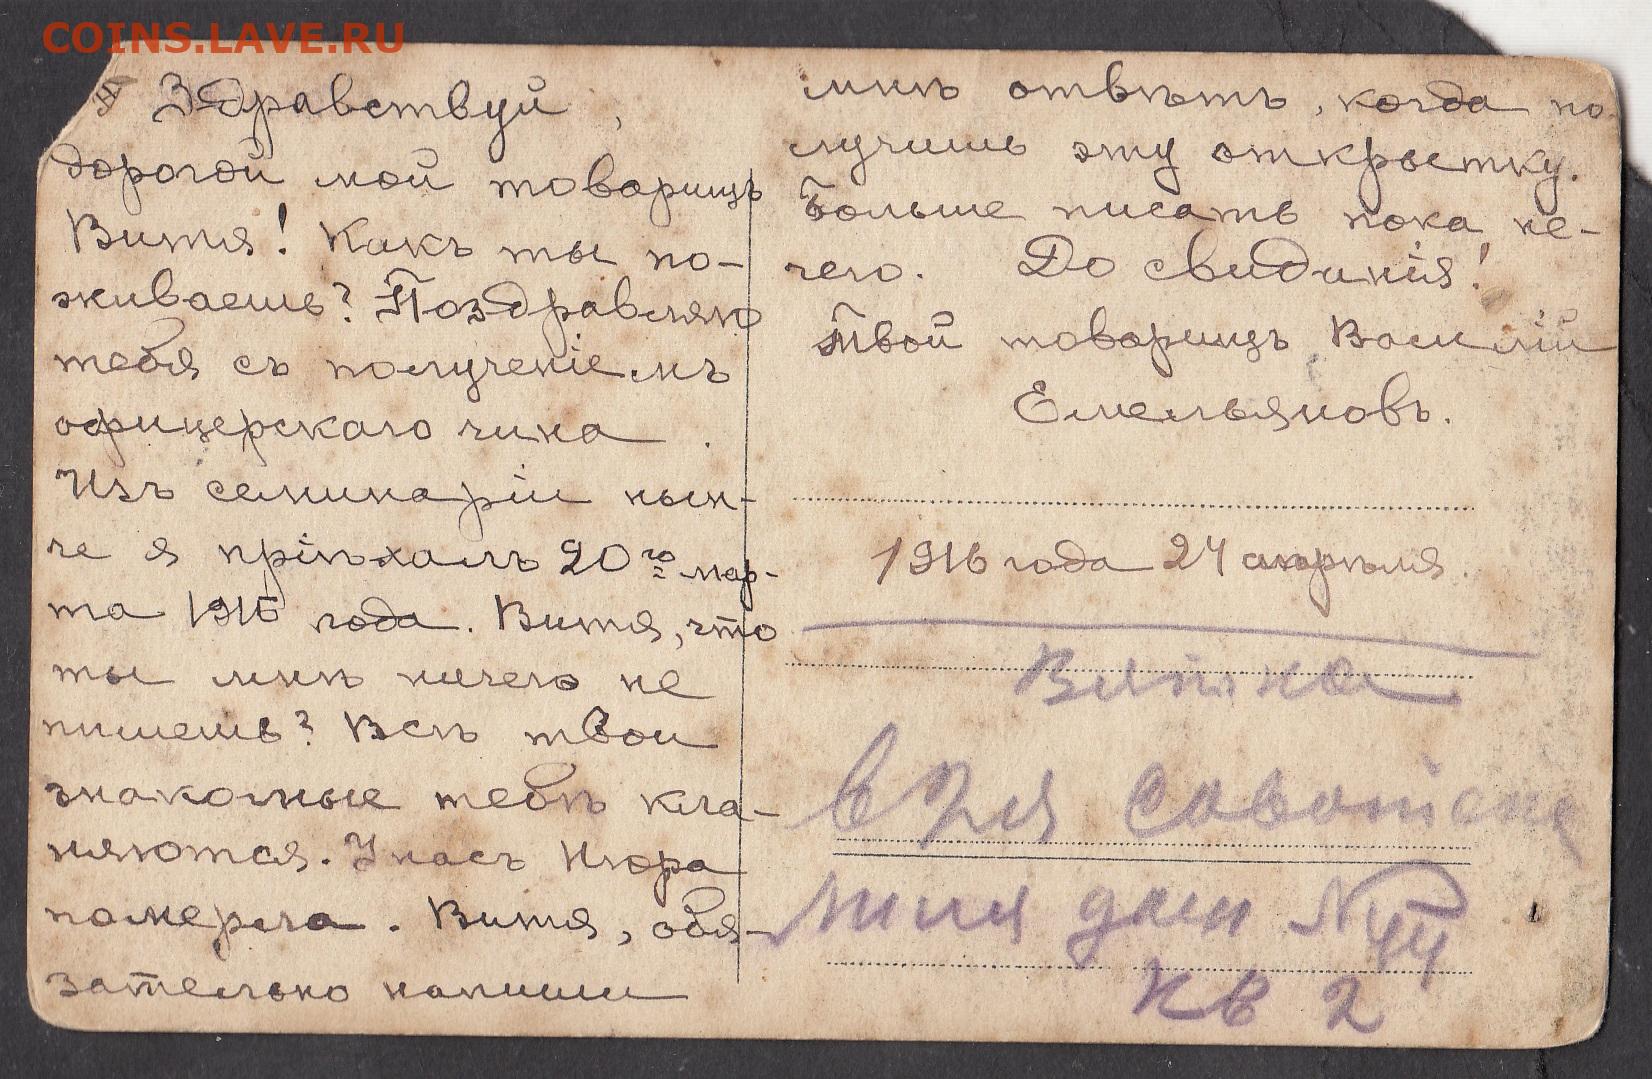 COINS.LAVE.RU
Здравствуй,
дорогой мой товарищъ
Витя! Какъ ты по-
живаешь? Поздравляю
тебя съ полученіемъ
офицерскаго чина.
Изъ семинаріи нын-
че я пріѣхалъ 20го мар-
та 1916 года. Витя, что
ты мнѣ ничего не
пишешь? Всѣ твои
знакомые тебѣ кла-
няются. У насъ Нюра
померла. Витя, обя-
зательно напиши
мнѣ отвѣтъ, когда по-
лучишь эту открытку.
Больше писать пока не-
чего. До свиданія!
Твой товарищъ Василій
Емельяновъ.
1916 года 24 апрѣля.
Вятка
линия дом №
кв 2